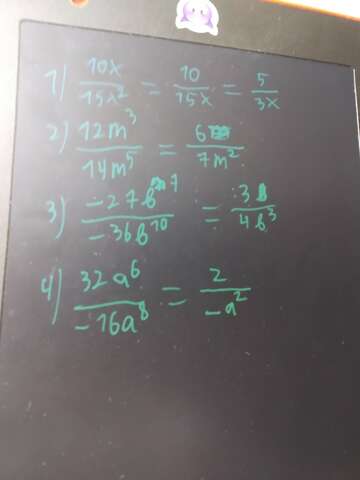 1) 10x/15x² = 10/15x = 5/3x
2) 12m³/14m⁵ = 6/7m²
3) -27b⁷/-36b¹⁰ = 3/4b³
4) 32a⁶/-16a⁸ = 2/-a²